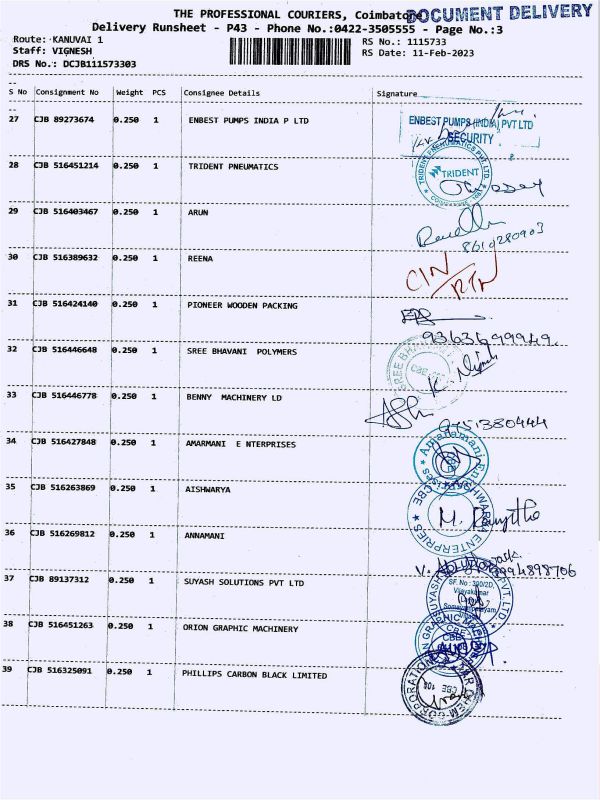 THE PROFESSIONAL COURIERS, Coimbatore
DOCUMENT DELIVERY
Delivery Runsheet - P43 - Phone No.:0422-3505555 - Page No.:3
Route: KANUVAI 1 RS No.: 1115733
Staff: VIGNESH RS Date: 11-Feb-2023
DRS No.: DCJB111573303
S No Consignment No Weight PCS Consignee Details Signature
27 CJB 89273674 0.250 1 ENBEST PUMPS INDIA P LTD
ENBEST PUMPS (INDIA) PVT LTD
SECURITY
28 CJB 516451214 0.250 1 TRIDENT PNEUMATICS
TRIDENT PNEUMATICS PVT. LTD.
TRIDENT
29 CJB 516403467 0.250 1 ARUN
8610280903
30 CJB 516389632 0.250 1 REENA
CIN/RTN
31 CJB 516424140 0.250 1 PIONEER WOODEN PACKING
32 CJB 516446648 0.250 1 SREE BHAVANI POLYMERS
SREE BHAVANI
33 CJB 516446778 0.250 1 BENNY MACHINERY LD
9751380444
34 CJB 516427848 0.250 1 AMARMANI E NTERPRISES
35 CJB 516263869 0.250 1 AISHWARYA
CBE
36 CJB 516269812 0.250 1 ANNAMANI
ENTERPRIES
37 CJB 89137312 0.250 1 SUYASH SOLUTIONS PVT LTD
SF. No : 390/2D,
PVT. LTD.
38 CJB 516451263 0.250 1 ORION GRAPHIC MACHINERY
CBE
39 CJB 516325091 0.250 1 PHILLIPS CARBON BLACK LIMITED